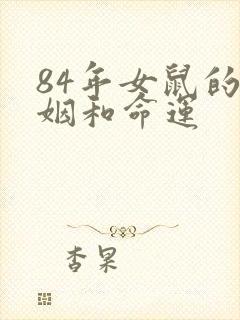 84年女鼠的
姻和命运
杏果